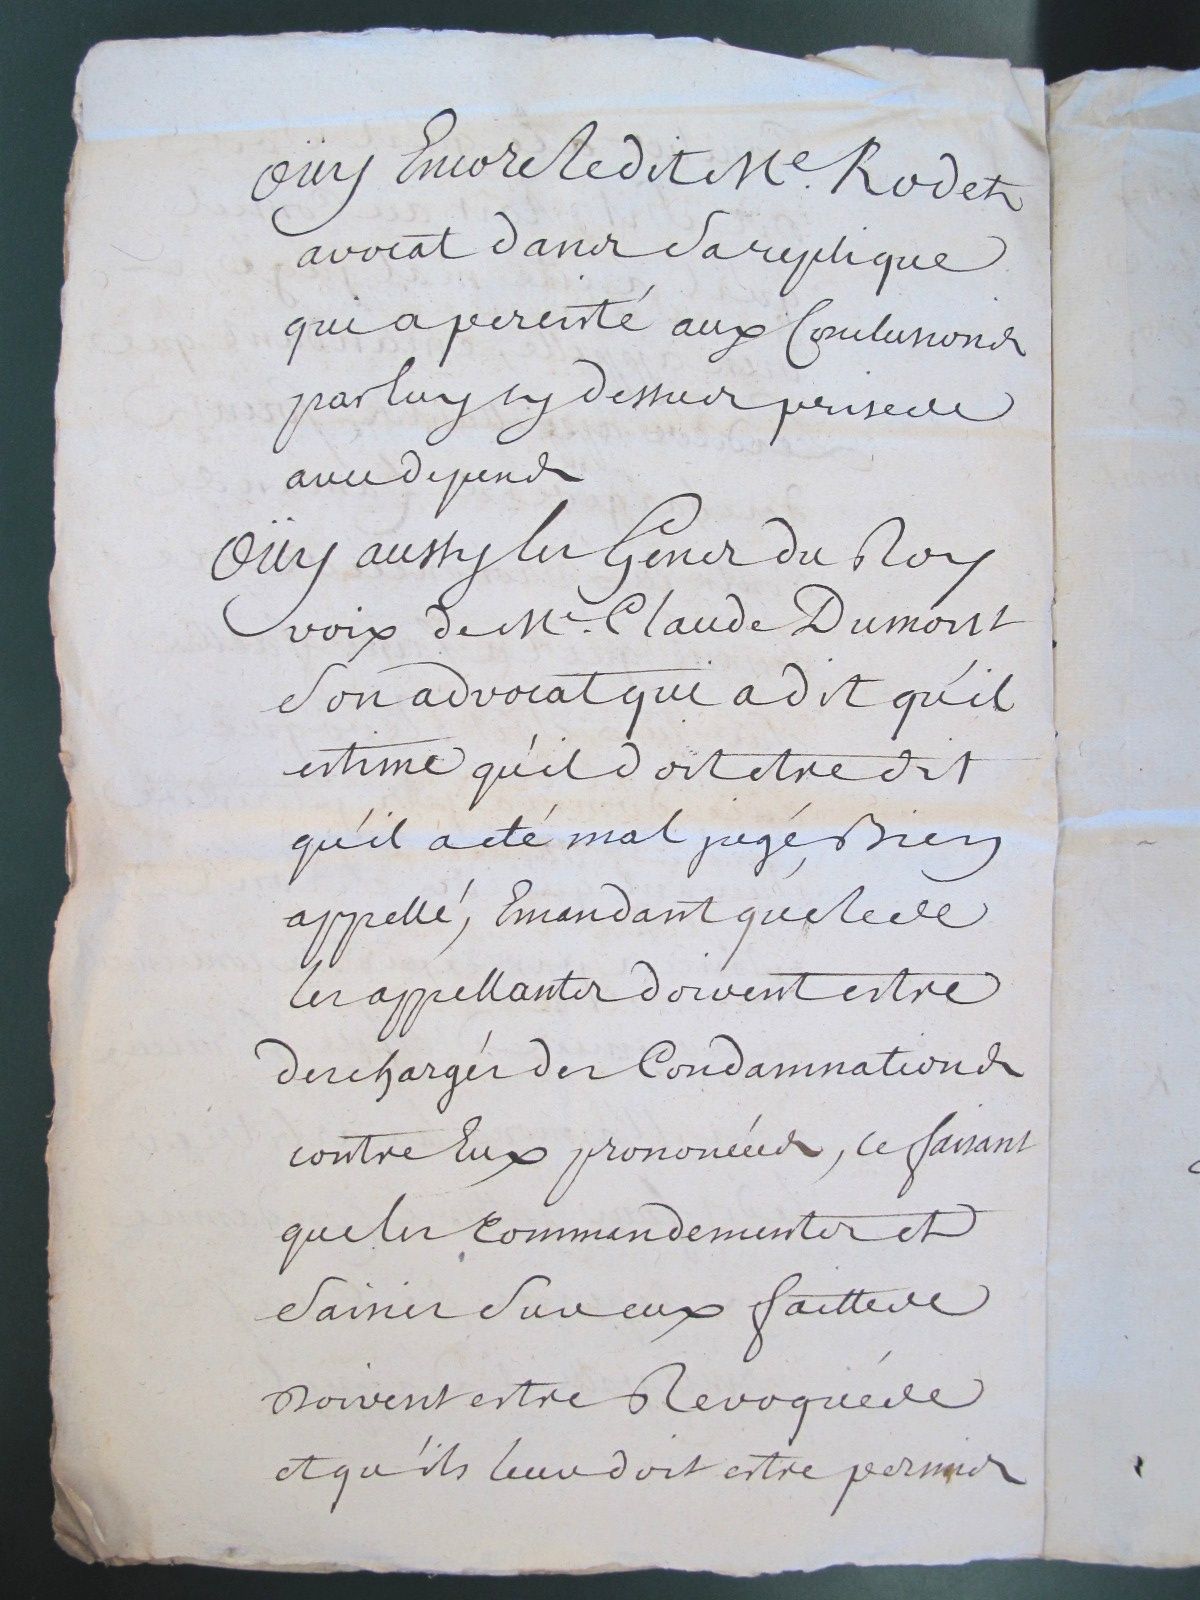 Oüy Encore ledit Me. Rodet
avocat dans sa replique
qui a persisté aux Conclusions
par luy cy dessus prises
avec depens
Oüy aussy les Gens du Roy
voix de Me. Claude Dumont
son advocat qui a dit qu'il
estime qu'il doit etre dit
qu'il a eté mal jugé, Bien
appellé, Emandant que
les appellants doivent estre
deschargés des Condamnations
contre Eux prononcées, ce faisant
que les Commandements et
saisies sur eux faittes
doivent estre Revoquées
et qu'ils leur doit estre permis